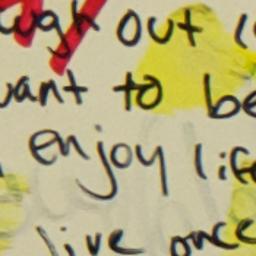 out
want to be
enjoy life
live once